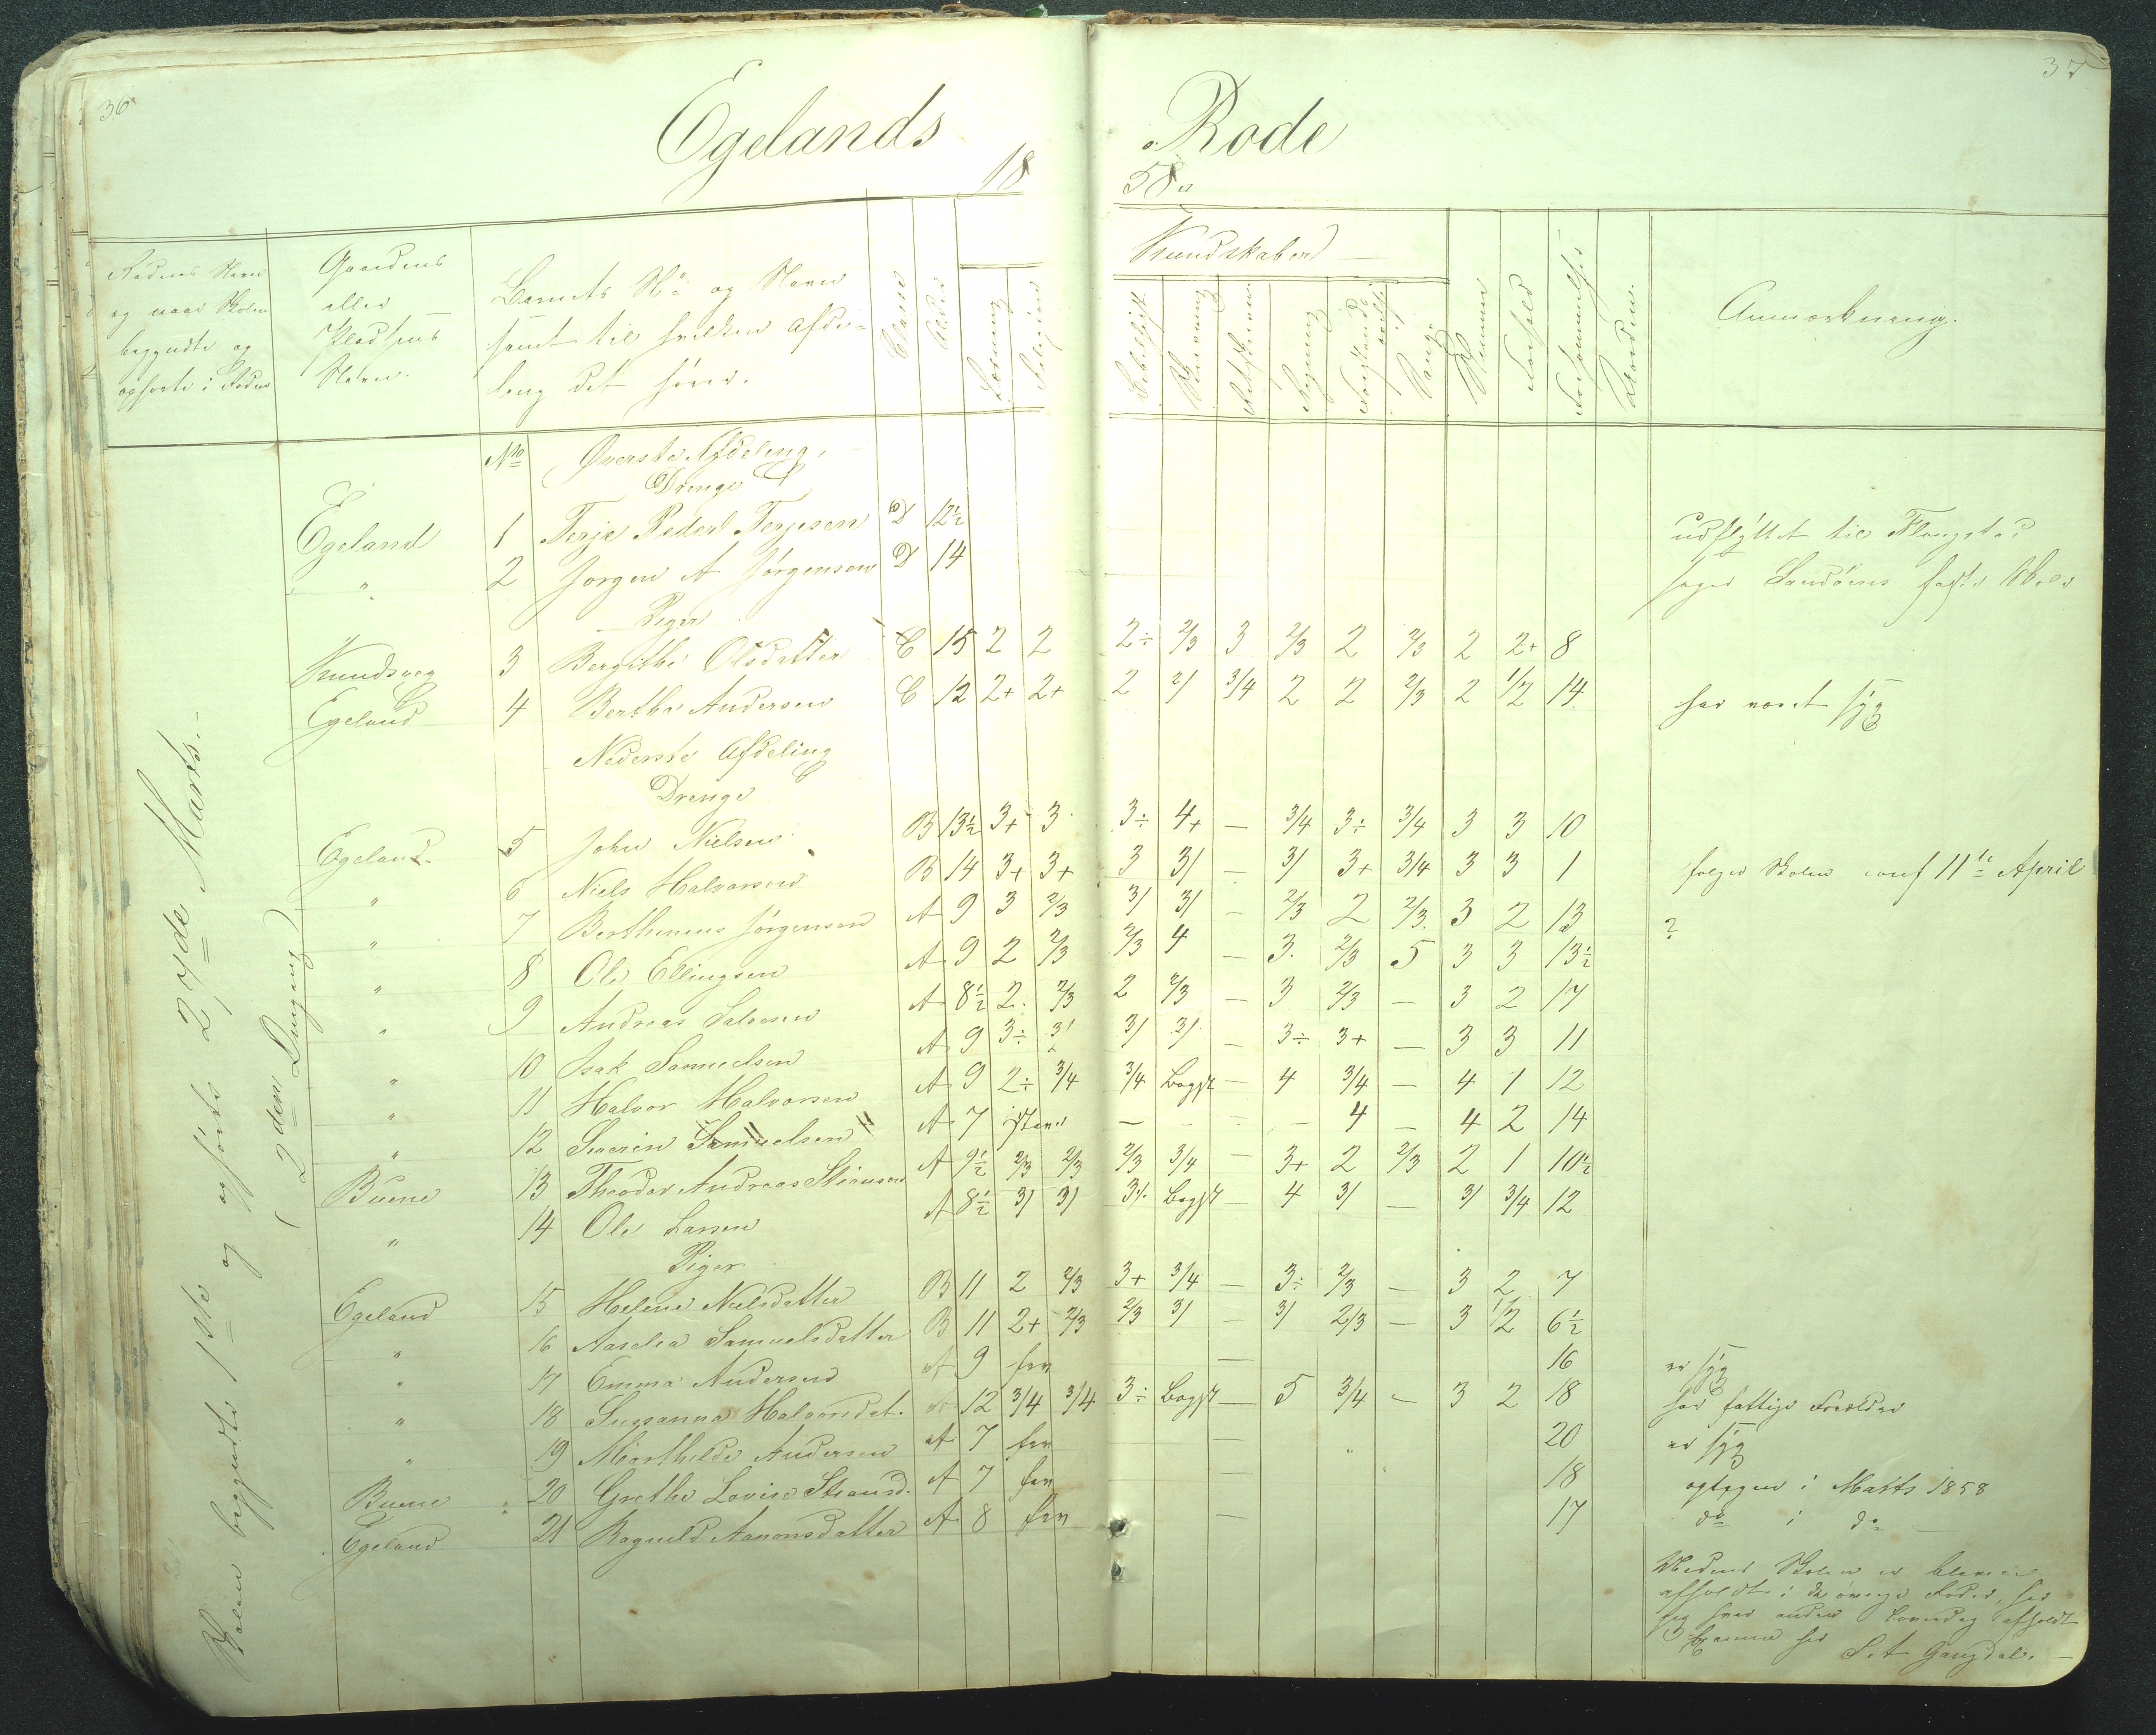 36
37
Egelands Rode
1858.
Rodens Navn
og naar Skolen
begyndte og
ophørte i Roden
Gaardens
eller
Pladsens
Navn.
Barnets No og Navn
samt til hvilken Afde-
ling det hører.
Classe
Alder
Kundskaber
Læsning
Religion
Skrivning
Retskrivn.
Regning
Forstands
Sang.
Nemme
Forhold
Forsømmelser
Anmærkning.
Skolen begyndte 1ste og ophørte 27de Marts.
(2den Omgang)
No Øverste Afdeling.
Drenge
Egeland 1 Terje Peder Terjesen D 12½ udflyttet til Flangstad
" 2 Jørgen A Jørgensen D 14 søger Sandøens faste Skole
Piger
Kundsveg 3 Bergithe Olsdatter C 15 2 2 2÷ 2/3 3 2/3 2 2/3 2 2+ 8
Egeland 4 Berthe Andersen C 12 2+ 2+ 2 2/ 3/4 2 2 2/3 2 1/2 14 har været syg
Nederste Afdeling
Drenge
Egeland 5 John Nielsen B 13½ 3+ 3 3÷ 4+ — 3/4 3÷ 3/4 3 3 10
" 6 Niels Halvorsen B 14 3+ 3+ 3 3/ — 3/ 3+ 3/4 3 3 1 følger Skolen 11te April
" 7 Berthinius Jørgensen A 9 3 2/3 3/ 3/ — 2/3 2 2/3 3 2 13 ?
" 8 Ole Ellingsen A 9 2 2/3 2/3 4 — 3. 2/3 5 3 3 13½
" 9 Andreas Salvesen A 8½ 2. 2/3 2 2/3 — 3 2/3 — 3 2 17
" 10 Isak Samuelsen A 9 3÷ 3/ 3/ 3/ — 3÷ 3+ — 3 3 11
" 11 Halvor Halvorsen A 9 2÷ 3/4 3/4 Begyt — 4 3/4 — 4 1 12
" 12 Severin Samuelsen A 7 — — — — 4 — 4 2 14
Buene 13 Theodor Andreas Stiansen A 9½ 2/3 2/3 2/3 3/4 — 3+ 2 2/3 2 1 10½
" 14 Ole Larsen A 8½ 3/ 3/ 3/. Begyt — 4 3/ — 3/ 3/4 12
Piger
Egeland 15 Helene Nielsdatter B 11 2 2/3 3+ 3/4 — 3÷ 2/3 — 3 2 7
" 16 Aaselia Samuelsdatter B 11 2+ 2/3 2/3 3/ — 3/ 2/3 — 3 1/2 6½
" 17 Emma Andersen A 9 — 16 er syg
" 18 Sussanna Halvorsdat. A 12 3/4 3/4 3÷ Begyt — 5 3/4 — 3 2 18 har fattige Forældre
" 19 Marthilde Andersen A 7 — 20 er syg
Buene 20 Grethe Lovise Stiansd. A 7 — 18 optagen i Marts 1858
Egeland 21 Ragnild Aanonsdatter A 8 — 17 do i do —
Medens Skolen er bleven
afholdt i de øvrige Roder, har
jeg hver anden Løverdag afholdt
Examen her
S. A Gangdal.